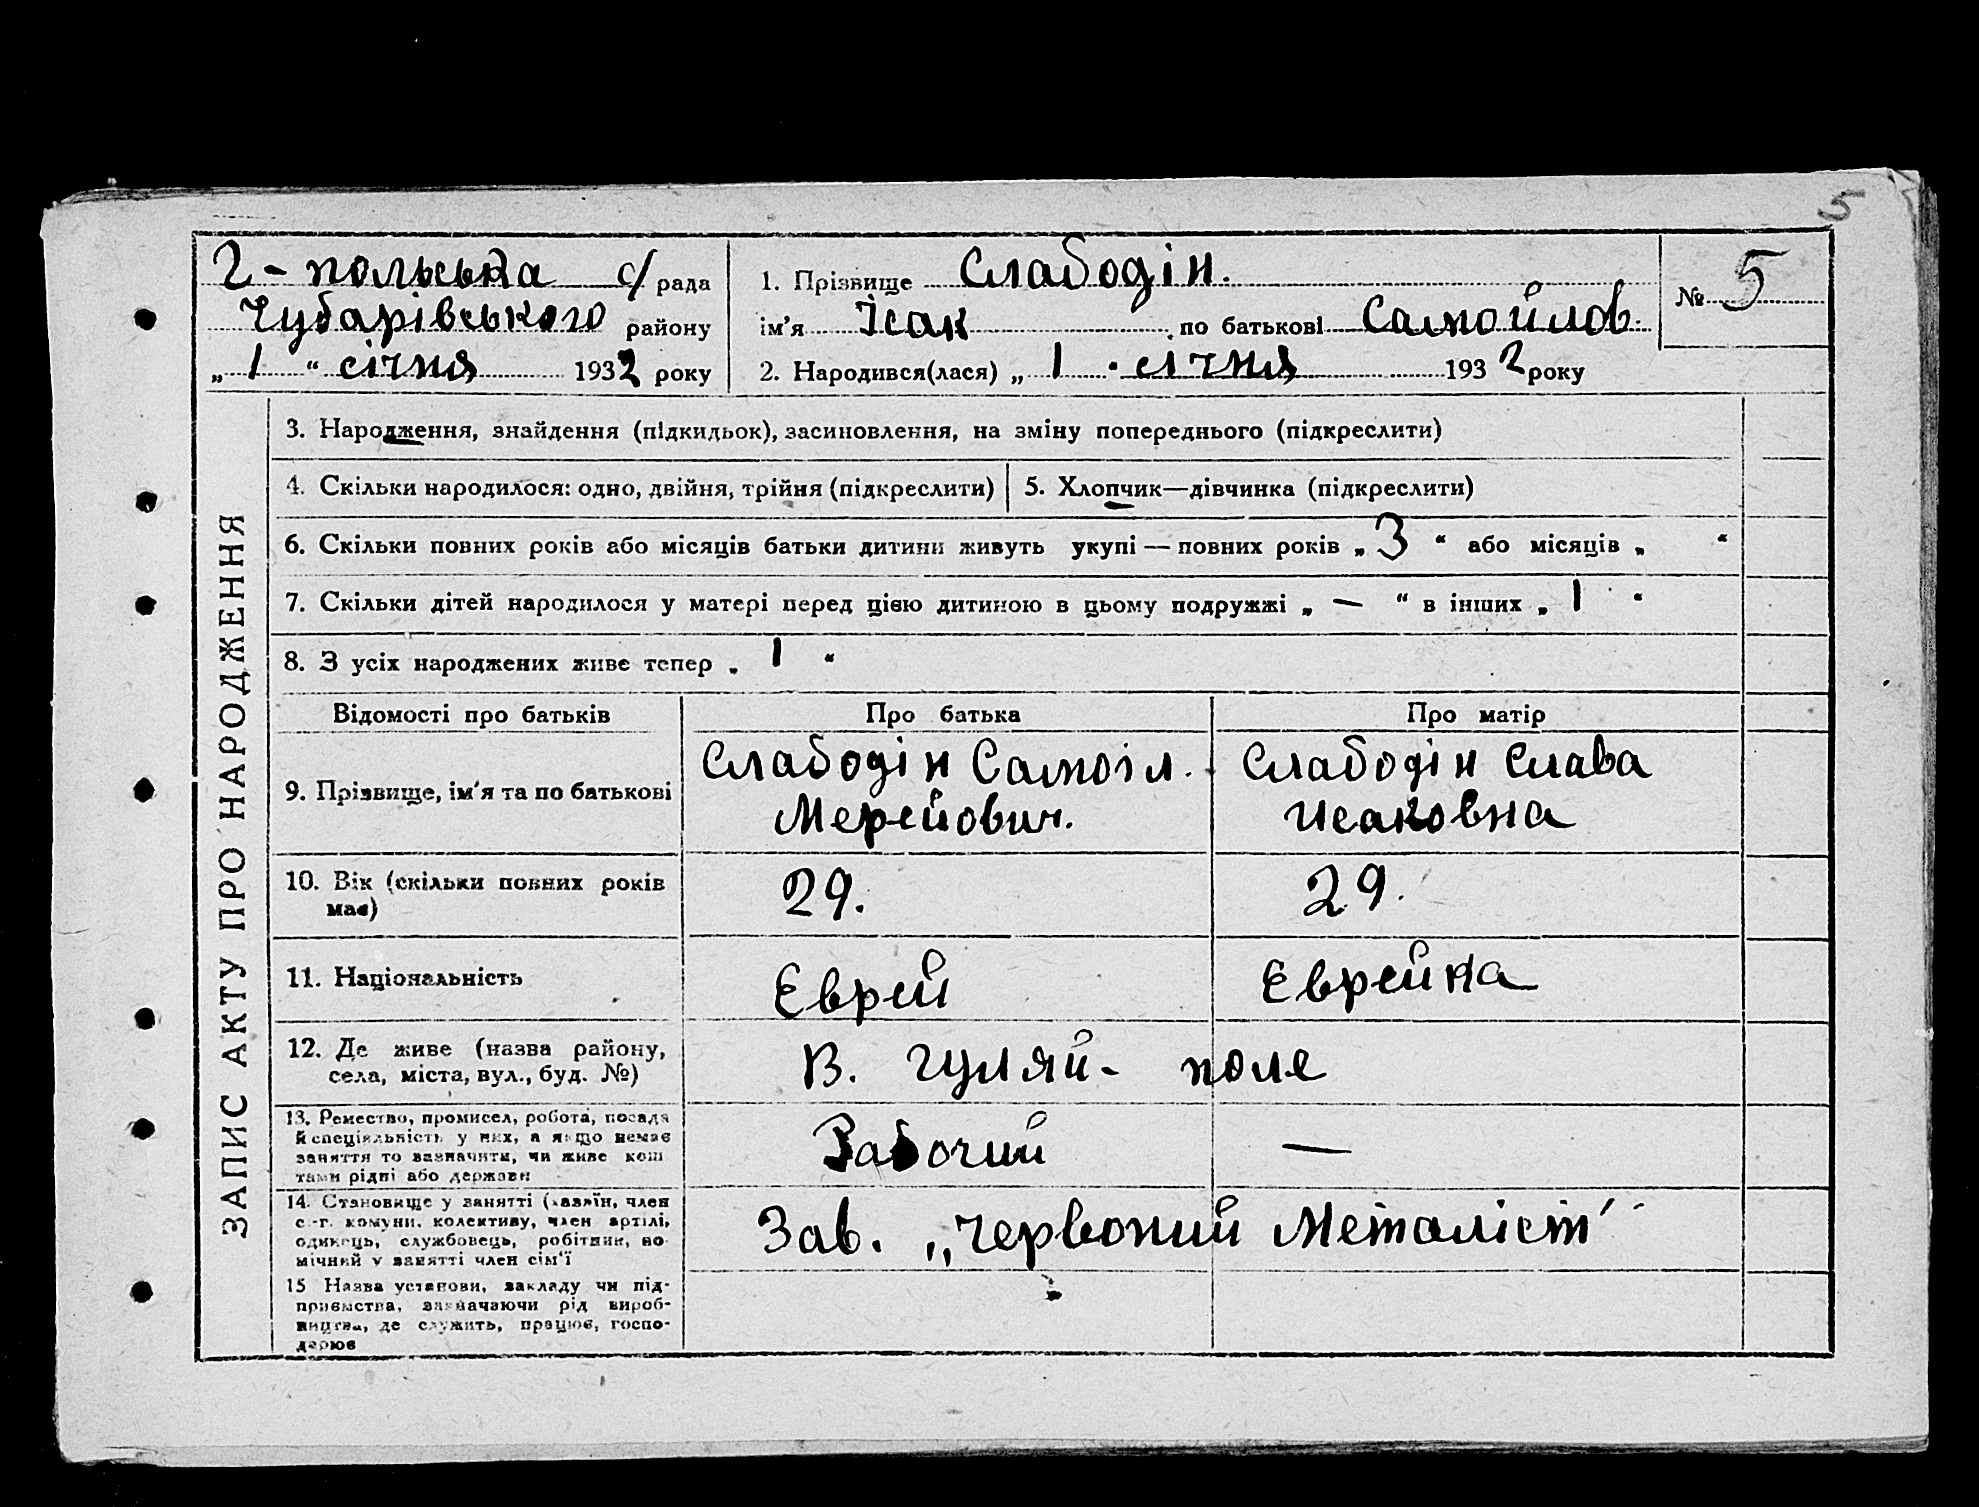 5
Г-польська с/рада
Чубарівського району
„ 1 “ січня 1932 року
1. Прізвище Слабодін.
ім'я Ісак по батькові Самойлов.
2. Народився(лася) „ 1 " січня 1932 року
№ 5
ЗАПИС АКТУ ПРО НАРОДЖЕННЯ
3. Народження, знайдення (підкидьок), засиновлення, на зміну попереднього (підкреслити)
4. Скільки народилося: одно, двійня, трійня (підкреслити)
5. Хлопчик—дівчинка (підкреслити)
6. Скільки повних років або місяців батьки дитини живуть укупі — повних років „ 3 “ або місяців „ “
7. Скільки дітей народилося у матері перед цією дитиною в цьому подружжі „ — “ в інших „ 1 “
8. З усіх народжених живе тепер „ 1 “
Відомості про батьків
Про батька
Про матір
9. Прізвище, ім'я та по батькові
Слабодін Самоіл.
Мерейович.
Слабодін Слава
Исаковна
10. Вік (скільки повних років
має)
29.
29.
11. Національність
Єврей
Єврейка
12. Де живе (назва району,
села, міста, вул., буд. №)
В. Гуляй-поле
13. Ремество, промисел, робота, посада
й спеціяльність у них, а якщо немає
заняття то зазначити, чи живе кош
тами рідні або держави
Рабочий
—
14. Становище у занятті (хазяїн, член
с.-г. комуни, колективу, член артілі,
одинець, службовець, робітник, по-
мічний у занятті член сім'ї
Зав. „Червоний Металіст“
15 Назва установи, закладу чи під-
приємства, зазначаючи рід вироб-
ництва, де служить, працює, госпо-
дарює